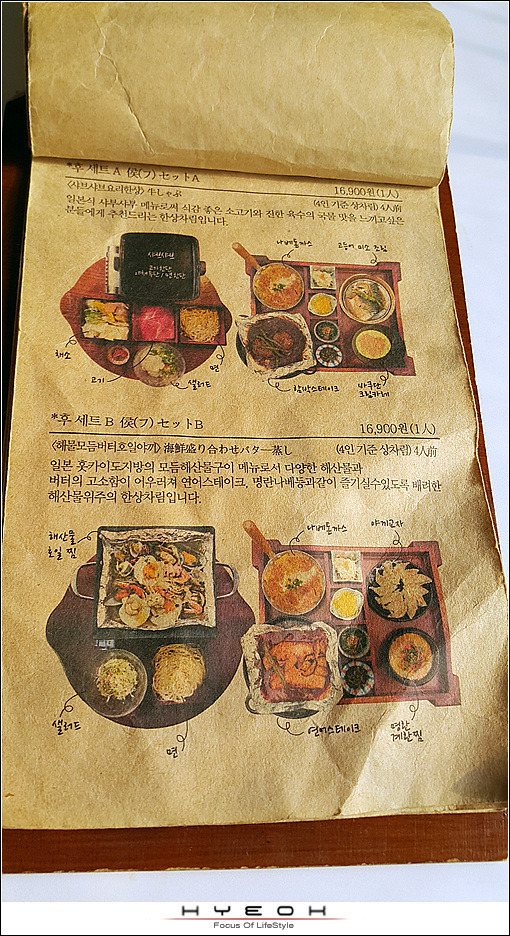 *후 세트 A 侯(フ) セットA
16,900원(1人)
<샤브샤브요리한상> 牛しゃぶ
(4인 기준 상차림) 4人前
일본식 샤부샤부 메뉴로써 식감 좋은 소고기와 진한 육수의 국물 맛을 느끼고싶은
분들에게 추천드리는 한상차림입니다.
나베돈까스
고등어 미소 조림
샤브샤브
채소
고기
샐러드
면
함박스테이크
크림카레
*후 세트 B 侯(フ) セットB
16,900원(1人)
<해물모듬버터호일야끼> 海鮮盛り合わせバター蒸し
(4인 기준 상차림) 4人前
일본 홋카이도지방의 모듬해산물구이 메뉴로서 다양한 해산물과
버터의 고소함이 어우러져 연어스테이크, 명란나베등과같이 즐기실수있도록 배려한
해산물위주의 한상차림입니다.
해산물
호일 찜
나베돈까스
야끼교자
샐러드
면
연어스테이크
명란
계란찜
HYEOH
Focus Of LifeStyle